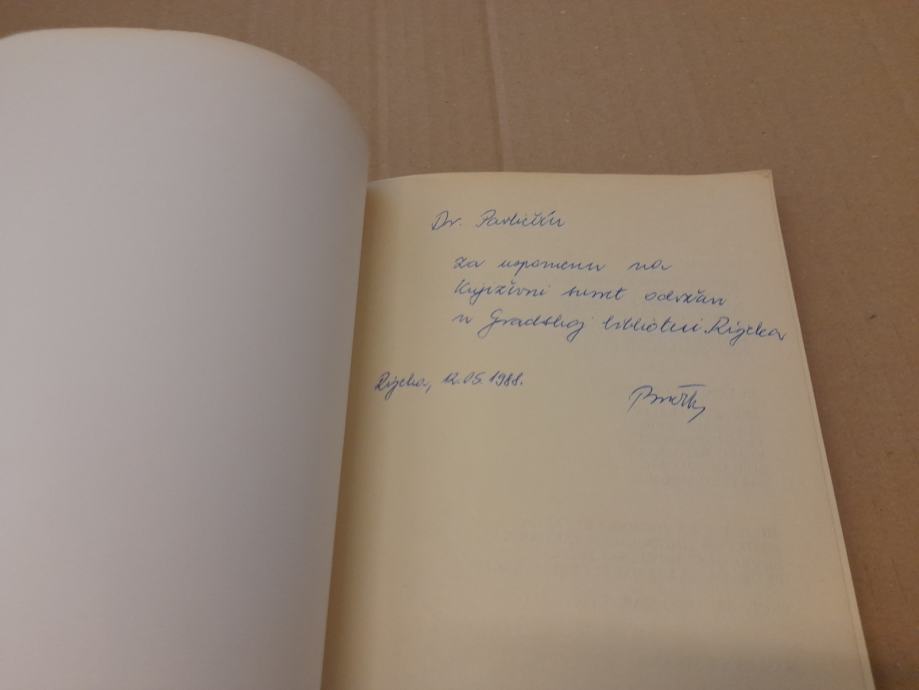 Dr. Pavličiću
za uspomenu na
Književni susret održan
u Gradskoj biblioteci Rijeka
Rijeka, 12.05.1988.